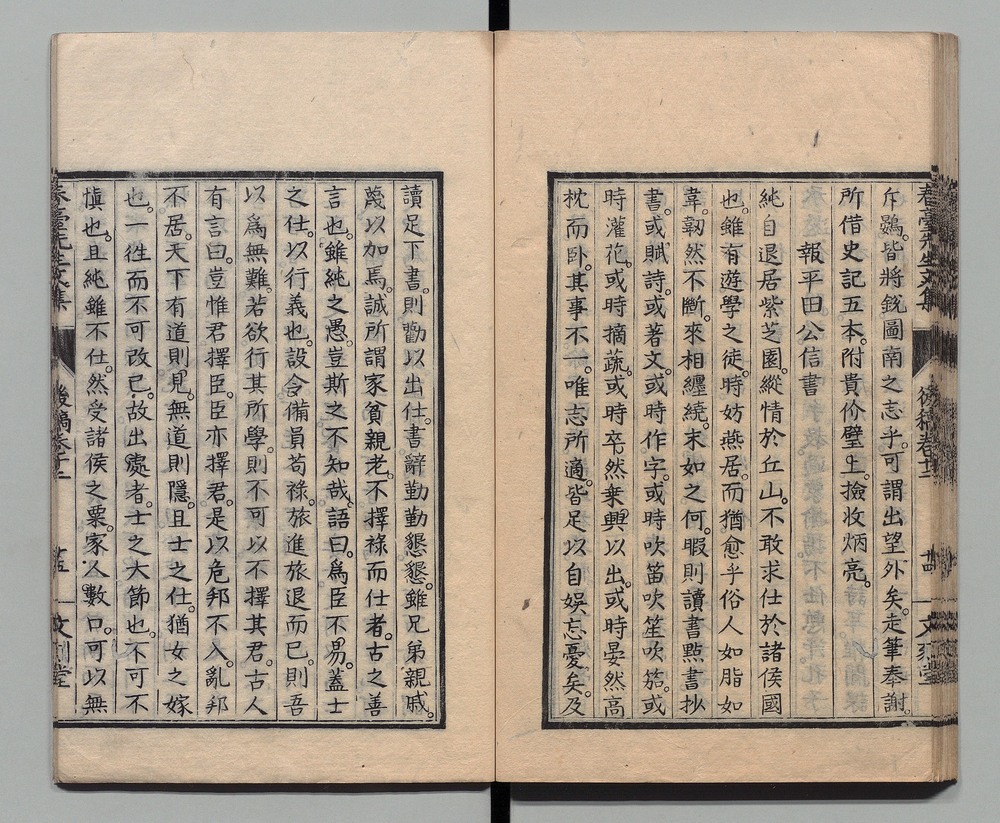 斥鷃皆將銳圖南之志乎。可謂出望外矣。走筆奉謝。
所借史記五本。附貴价璧上。撿收炳亮。
報平田公信書
純自退居紫芝園。縱情於丘山。不敢求仕於諸侯國
也。雖有遊學之徒。時妨燕居。而猶愈乎俗人如脂如
韋。韌然不斷。來相纏繞。末如之何。暇則讀書。㸃書。抄
書。或賦詩。或著文。或時作字。或時吹笛吹笙吹𥬇。或
時灌花。或時摘蔬。或時卒然乗興以出。或時晏然高
枕而卧。其事不一。唯志所適。皆足以自娯忘憂矣。及
春臺先生文集
後稿卷十二
文刻堂
讀足下書。則勸以出仕。書辭勤勤懇懇。雖兄弟親戚。
蔑以加焉。誠所謂家貧親老。不擇祿而仕者。古之善
言也。雖純之愚。豈斯之不知哉。語曰。爲臣不易。蓋士
之仕。以行義也。設令備員苟祿。旅進旅退而已。則吾
以爲無難。若欲行其所學。則不可以不擇其君。古人
有言曰。豈惟君擇臣。臣亦擇君。是以危邦不入。亂邦
不居。天下有道則見。無道則隱。且士之仕。猶女之嫁
也。一徃而不可改已。故出處者。士之大節也。不可不
愼也。且純雖不仕。然受諸侯之粟。家人數口。可以無